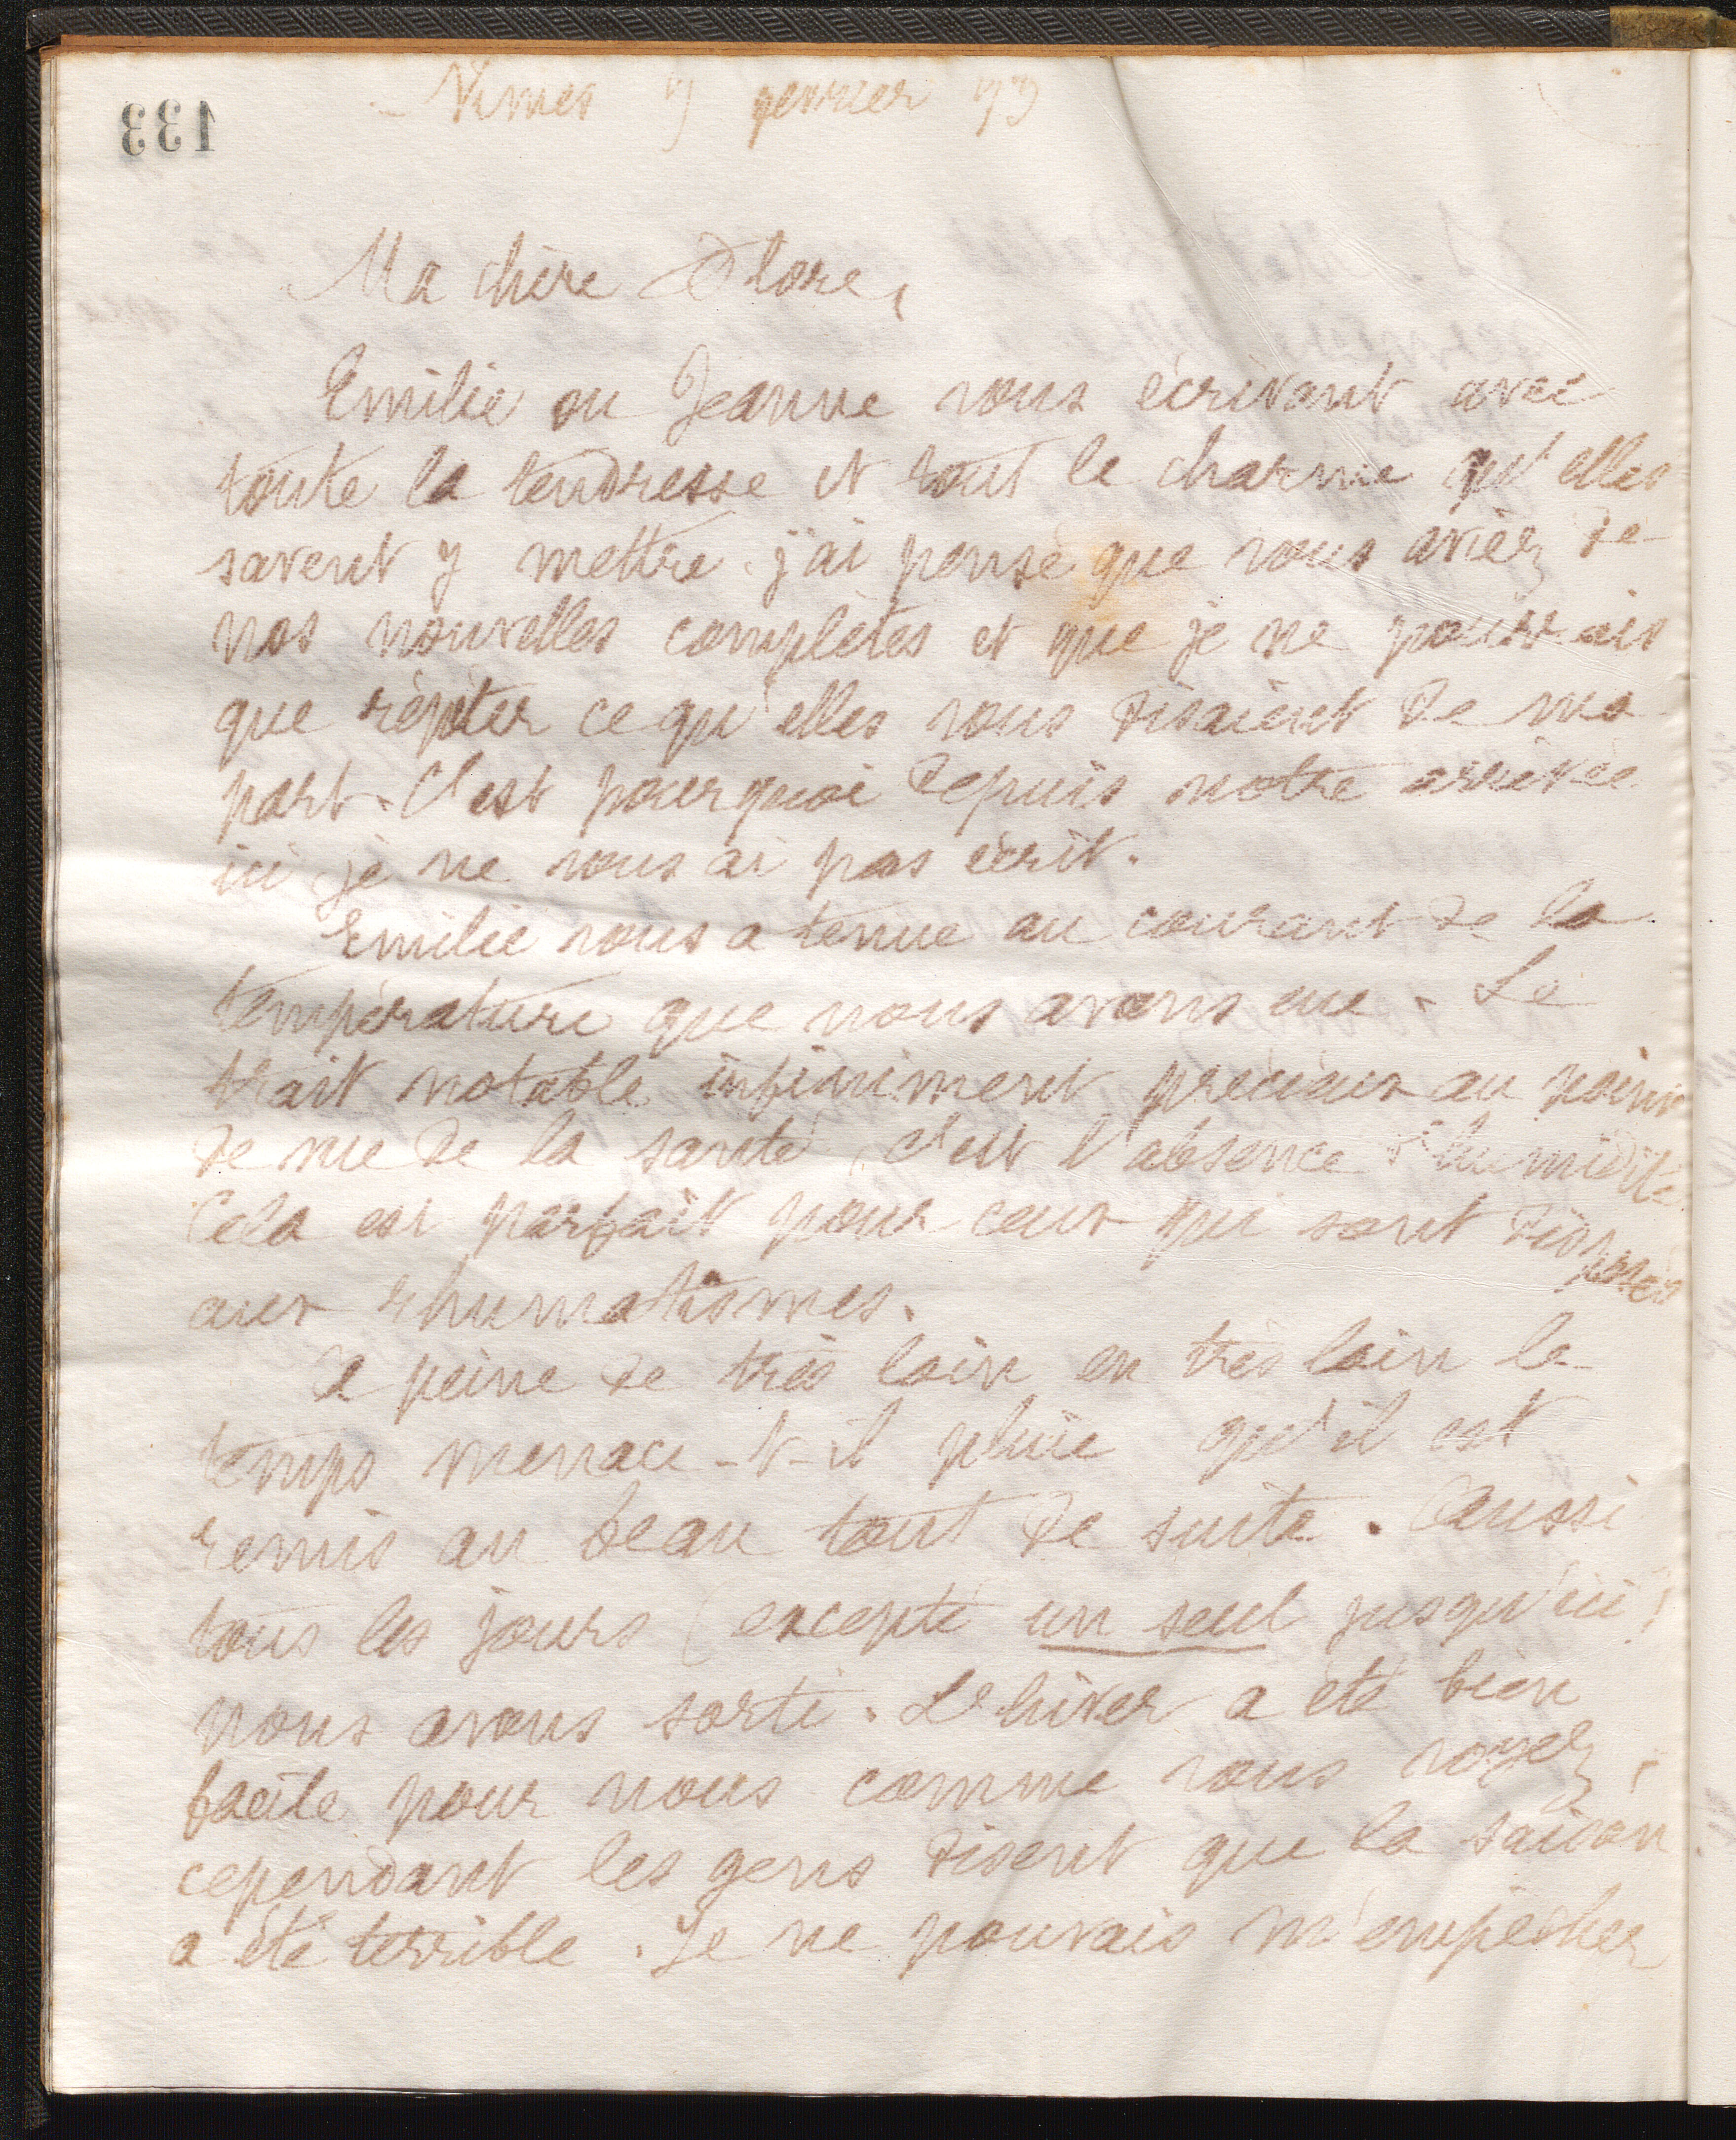 133
Nimes 7 fevrier 93
Ma chère Flore,
Emilie ou Jeanne vous écrivant avec
toute la tendresse et tout le charme qu'elles
savent y mettre. j'ai pensé que vous aviez de
nos nouvelles complètes et que je ne pourrais
que répéter ce qu'elles vous disaient de ma
part. C'est pourquoi depuis notre arrivée
ici je ne vous ai pas écrit.
Emilie vous a tenue au courant de la
température que nous avons eue. Le
trait notable infiniment précieux au point
de vue de la santé, c'est l'absence d'humidité
Cela est parfait pour ceux qui sont disposés
aux rhumatismes.
A peine de très loin en très loin le
temps menace-t-il pluie qu'il est
remis au beau tout de suite. Aussi
tous les jours (excepté un seul jusqu'ici)
nous avons sorti. L'hiver a été bien
facile pour nous comme vous voyez,
cependant les gens disent que la saison
a été terrible. Je ne pouvais m'empêcher